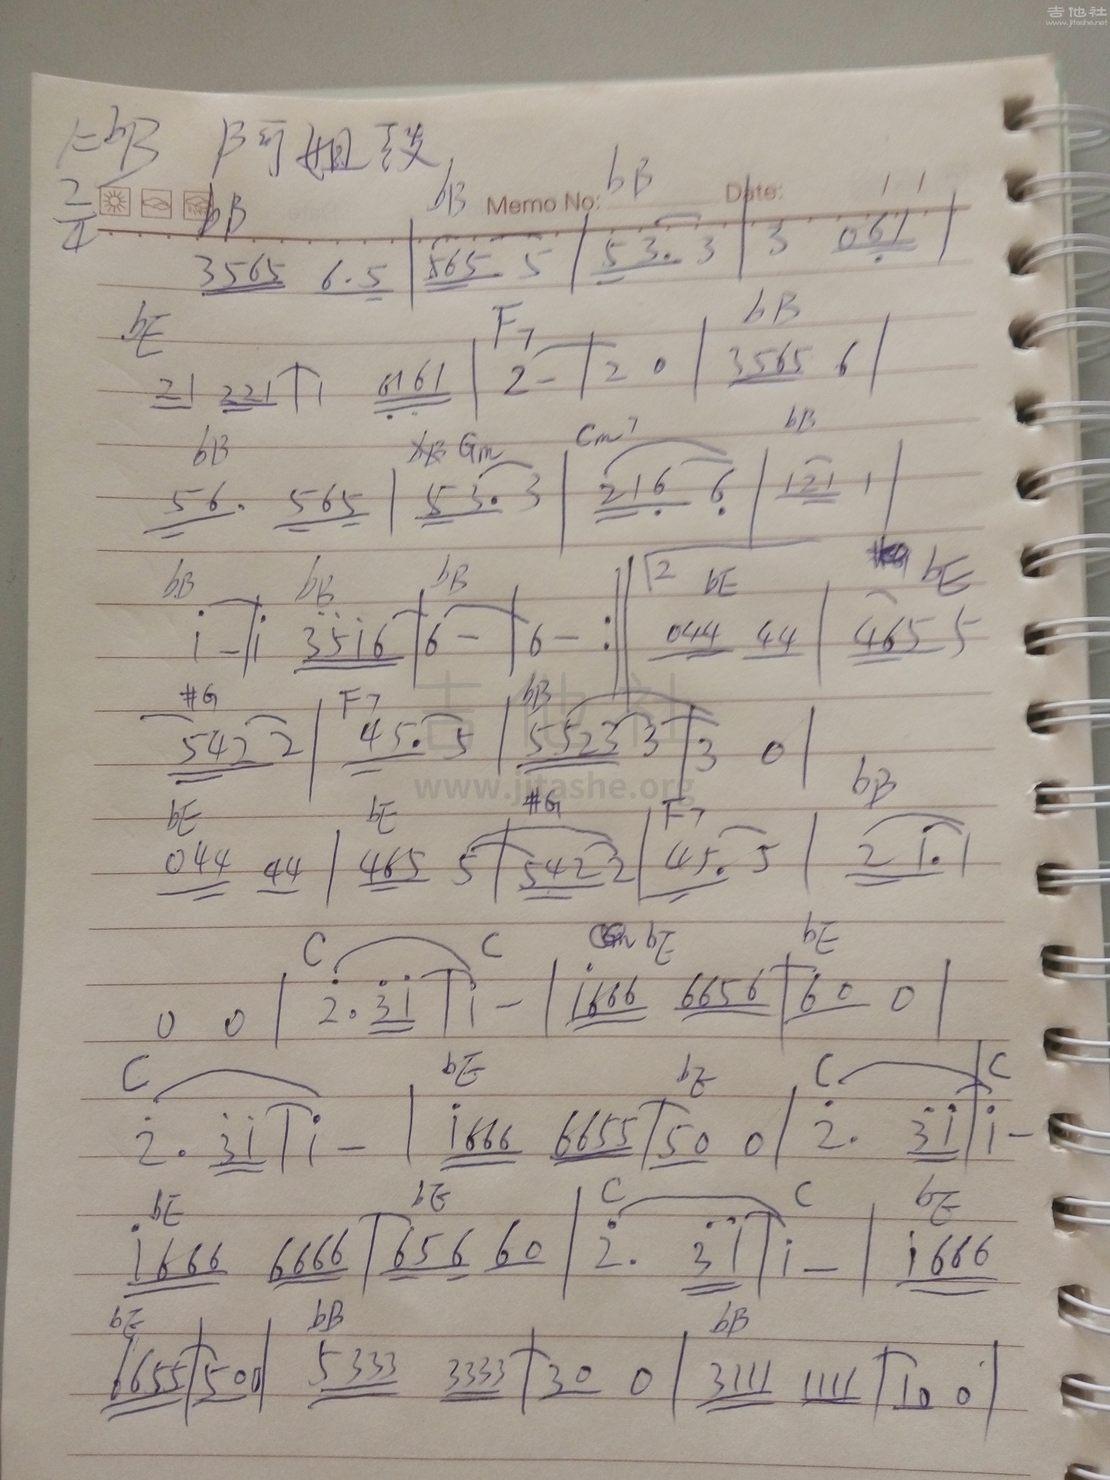 吉他社
www.jitashe.net
1=bB 阿姐鼓
2/4
Memo No: Date:
bB bB bB 1 1
3565 6.5 | 565. 5 | 53. 3 | 3 061 |
bE F7 bB
21 221 | 1 6161 | 2 - | 2 0 | 3565 6 |
bB Gm Cm7 bB
56. 565 | 53. 3 | 216 6 | 121 1 |
bB bB bB 2 bE bE
i - | i 3516 | 6 - | 6 - :|| 044 44 | 465 5
#G F7 bB
5422 2 | 45. 5 | 5523 3 | 3 0 |
吉他社
www.jitashe.org
bE bE #G F7 bB
044 44 | 465 5 | 5422 | 45. 5 | 2 i. i
C C bE bE
0 0 | 2. 3i | i - | i666 6656 | 60 0 |
C bE bE C C
2. 3i | i - | i666 6655 | 50 0 | 2. 3i | i -
bE bE C C bE
i666 6666 | 656 60 | 2. 3i | i - | i666
bE bB bB
6655 | 500 | 5333 3333 | 30 0 | 3111 1111 | 10 0 |